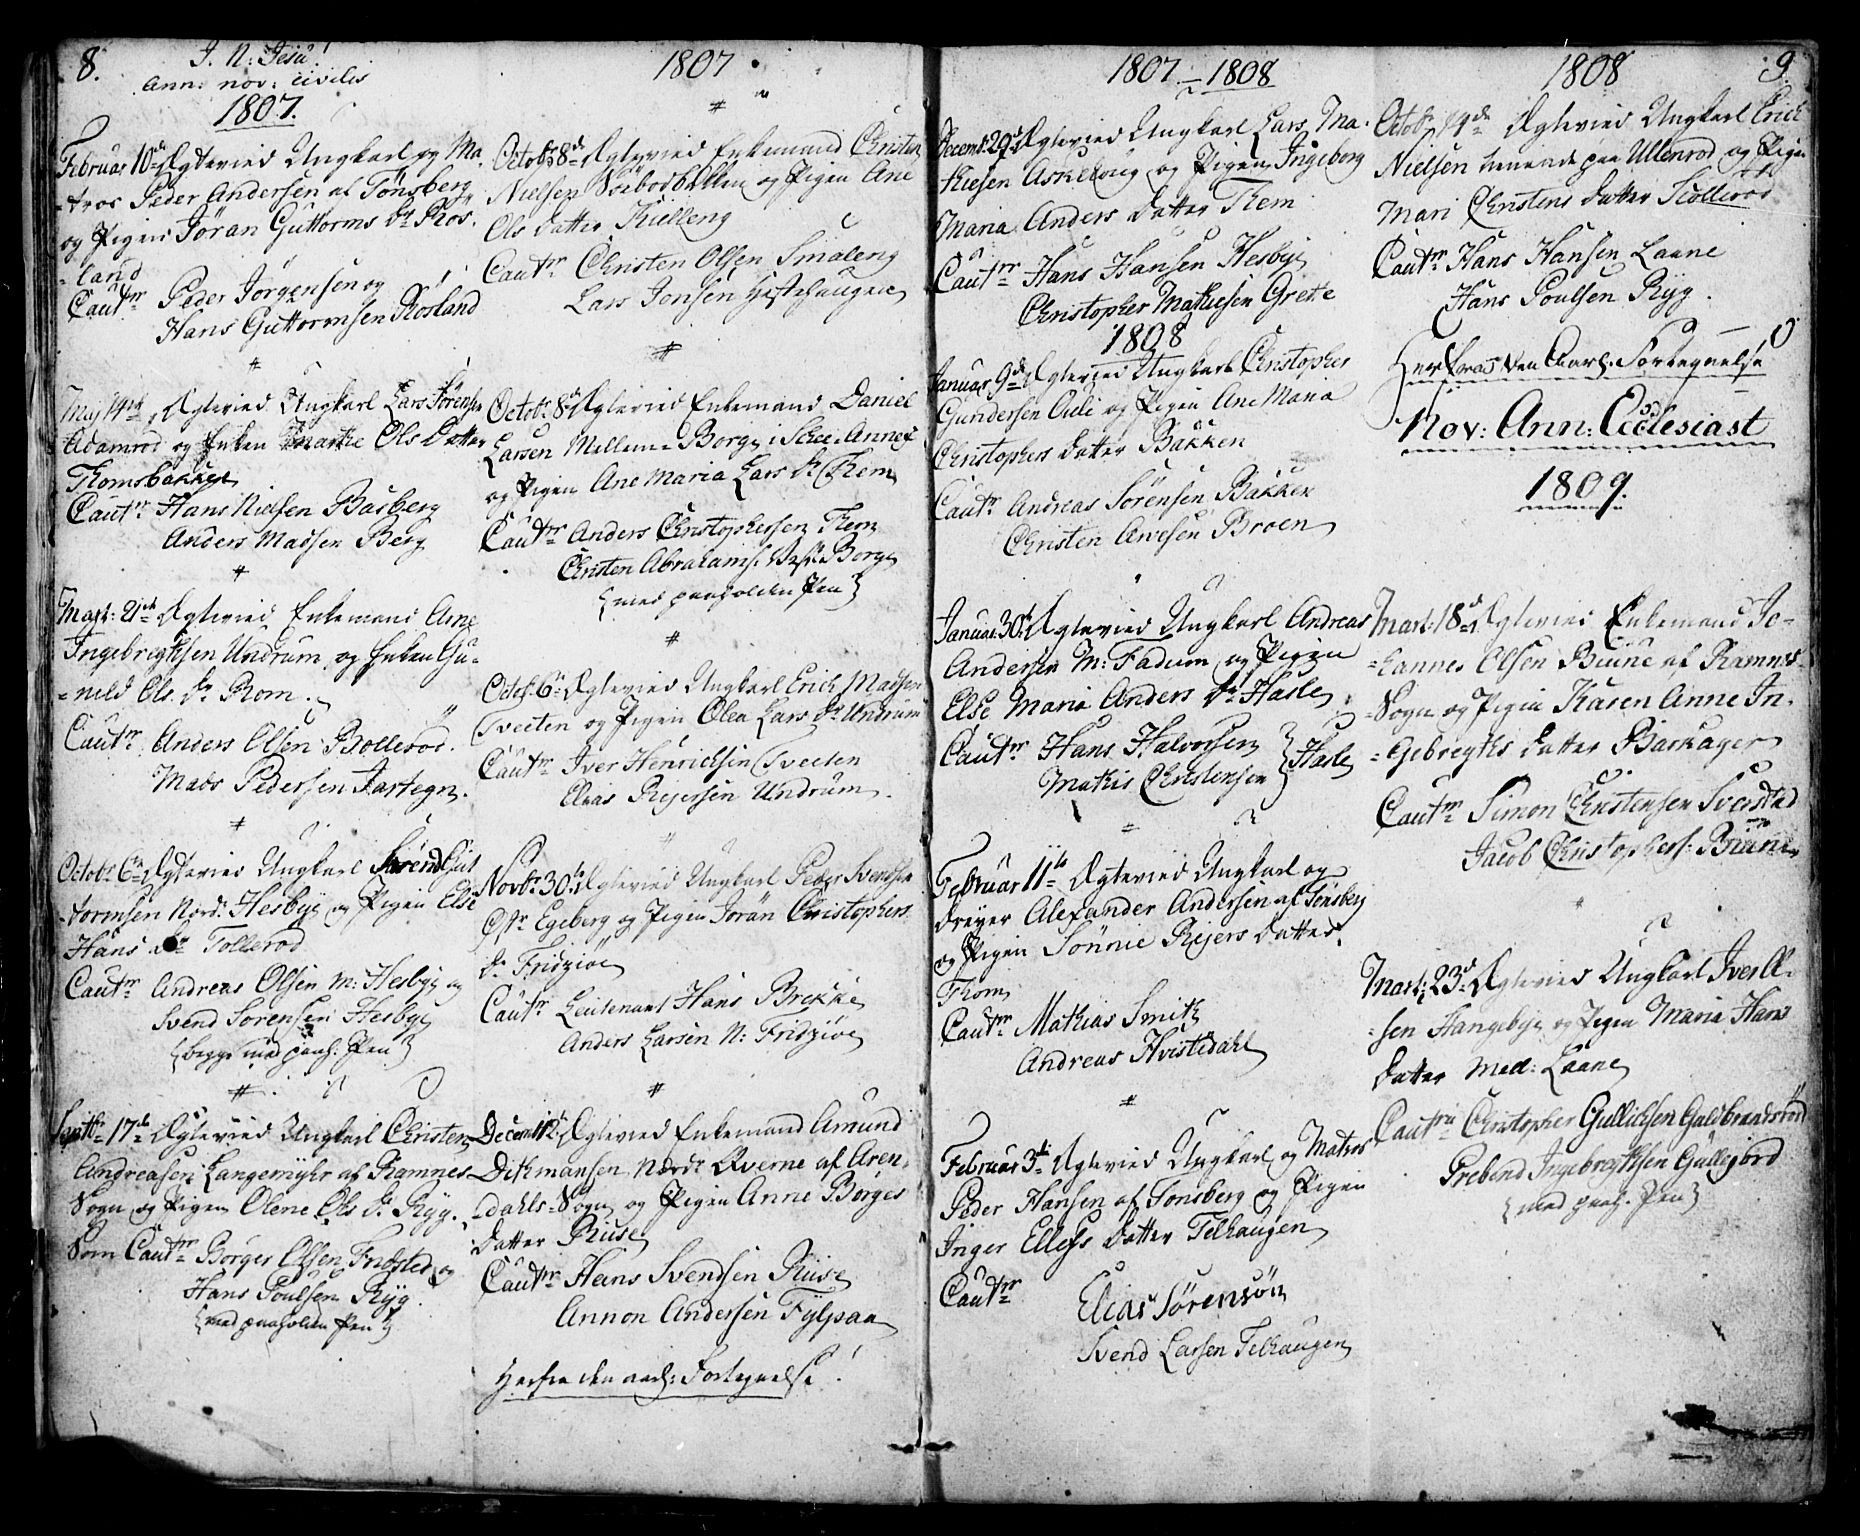 8.
I. N. Jesu!
Ann: nov: civilis
1807.
Februar 10de Ægtevied Ungkarl og Ma-
-tros Peder Andersen af Tönsberg
og Pigen Jöran Guttorms Dr Ros-
-land
Cautr Peder Jörgensen og
Hans Guttormsen Rosland
#
Maj 14de Ægteviet Ungkarl Lars Sörensen
Adamröd og Enken Marthe Ols Datter
Thomsbakken
Cautr Hans Nielsen Basberg
Anders Madsen Berg
#
Ægteviet Enkemand Arne
Ingebregtsen Undrum og Enken Gu-
-nild Ols Dr Rom.
Cautr Anders Olsen Bolleröd.
Mads Pedersen Jartegn.
#
Octobr 6te Ægteviet Ungkarl Sörend Gut
-tormsen Nord: Hesbye og Pigen Else
Hans Dr Tolleröd
Cautr Andreas Olsen M: Hesbye og
Svend Sörensen Hesbye
{begge med paah: Pen}
#
Septbr 17de Ægteviet Ungkarl Christen
Andreasen Langemyhr af Ramnes
Sogn og Pigen Olene Ols Dr Ryg.
Som Cautr Börger Olsen Fridsted og
Hans Poulsen Ryg.
{med paaholden Pen}
1807
#
Octobr 8de Ægteviet Enkemand Christen
Nielsen Söebodbakken og Pigen Ane
Ols Datter Kielleng
Cautr Christen Olsen Smaleng
Lars Jonsen Hestehaugen
#
Octobr 8de Ægteviet Enkemand Daniel
Larsen Mellem-Borge i Annex
og Pigen Ane Maria Lars Dr Them
Cautr Anders Christophersen Them
Christen Abrahams: Borge
{med paaholden Pen}
#
Ægteviet Ungkarl Erich Madsen
Sveeten og Pigen Olea Lars Dr Undrum
Cautr Iver Henrichsen Sveeten
Elias Rejersen Undrum.
Novbr 30te Ægteviet Ungkarl Peder Svendsen
Ostr Egeberg og Pigen Jörän Christophers
Dr Fridziöe
Cautr Leutenant Hans Brekke
Anders Larsen N: Fridziöe
#
Ægteviet Enkemand Amund
Dithmansen Nordr Qverne af Aren-
-dahls-Sogn og Pigen Anne Börges
Datter Ruse
Cautr Hans Svendsen Ruse
Annon Andersen Fylpaa
Herfra den aarl: Fortegnelse!
1807 – 1808
Decemb: 29de Ægteviet Ungkarl Lars Ma-
thiesen Askeloug og Pigen Ingeborg
Maria Anders Datter Them
Cautr Hans Hansen Hesbye
Christopher Mathiesen Grette
1808
Januar 9de Ægteviet Ungkarl Christopher
Gundersen Oeli og Pigen Ane Maria
Christophers Datter Bakken
Cautr Andreas Sörensen Bakken
Christen Arvesen Broen
Januar 30te Ægteviet Ungkarl Andreas
Andersen M: Fadum og Pigen
Else Maria Anders Dr Hasle
Cautr Hans Halvorsen
Mathis Christensen } Hasle
=
Februar 11te Ægteviet Ungkarl og
Dreyer Alexander Andersen af Tönsberg
og Pigen Sönnie Rejers Datter
Thom
Cautr Mathias Smith
Andreas Hvistedahl
#
Februar 3de Ægteviet Ungkarl og Matros
Peder Hansen af Tönsberg og Pigen
Inger Ellefs Datter Telhaugen
Cautr Elias Sörensön
Svend Larsen Telhaugen
1808
9.
Octobr 14de Ægteviet Ungkarl Erich
Nielsen tienende paa Ullenröd og Pigen
Mari Christens Datter Skolleröd
Cautr Hans Hansen Laane
Hans Poulsen Ryg.
Herfra den Aarl: Fortegnelse
Nov: Ann: Ecclesiast
1809.
Mart: 18de Ægteviet Enkemand Jo-
-hannes Olsen Brune af Ramnes-
-Sogn og Pigen Karen Anne In-
-gebregts Datter Barkager
Cautr Simon Christensen Sverstad
Jacob Christophers: Brune
Mart: 23de Ægteviet Ungkarl Iver Ol-
sen Hangebye og Pigen Maria Hans
Datter Med: Laane
Cautr Christopher Gullichsen Guldbrandsröd
Prebend Ingebregtsen Gullegiord
{med paah: Pen}